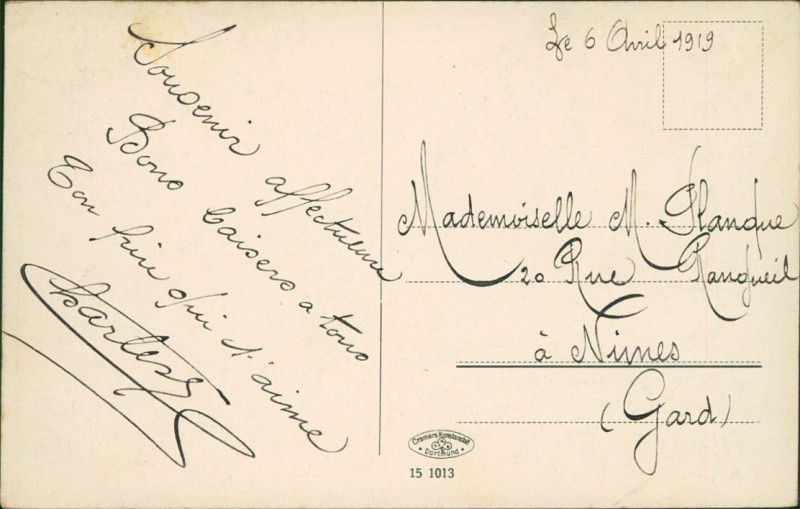 Souvenir affectueux
Bons baisers a tous
Ton frère qui t'aime
Le 6 Avril 1919
Mademoiselle M. Planque
20 Rue Rangueil
à Nimes
(Gard)
Cramers Kunstanstalt
Dortmund
15 1013